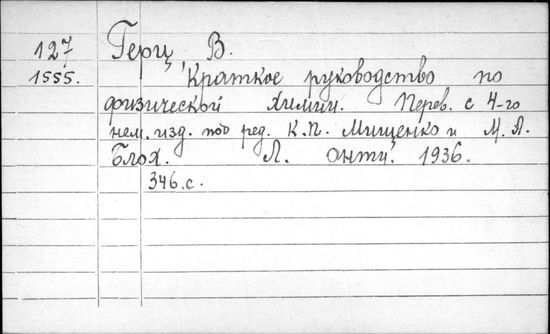 127 Герц В.
1555. Краткое руководство по
физической химии. Перев. с 4-го
нем. изд. под ред. К.П. Мищенко и М.А.
Блох. Л. онти. 1936.
346.с.